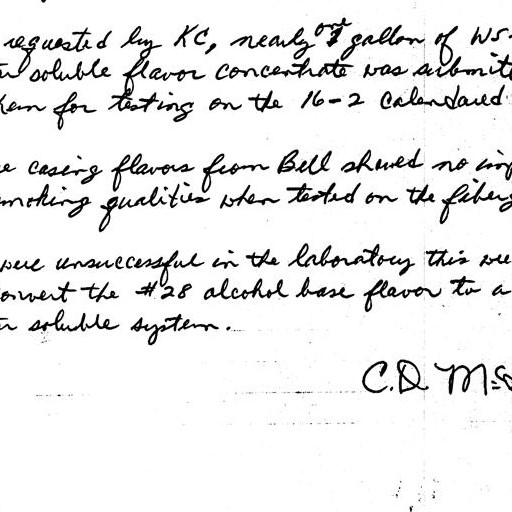 requested by KC, nearly one gallon of WS-
soluble flavor concentrate was submit
for testing on the 16-2 calendared
casing flavors from Bell showed no imp
smoking qualities when tested on the fiberg
were unsuccessful in the laboratory this we
convert the #28 alcohol base flavor to a
soluble system.
C.D. Mc